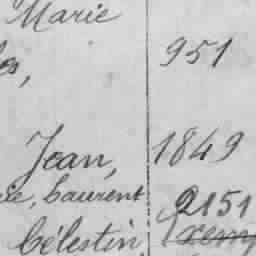 Marie
951
Jean, 1849
Laurent 2151
Célestin,